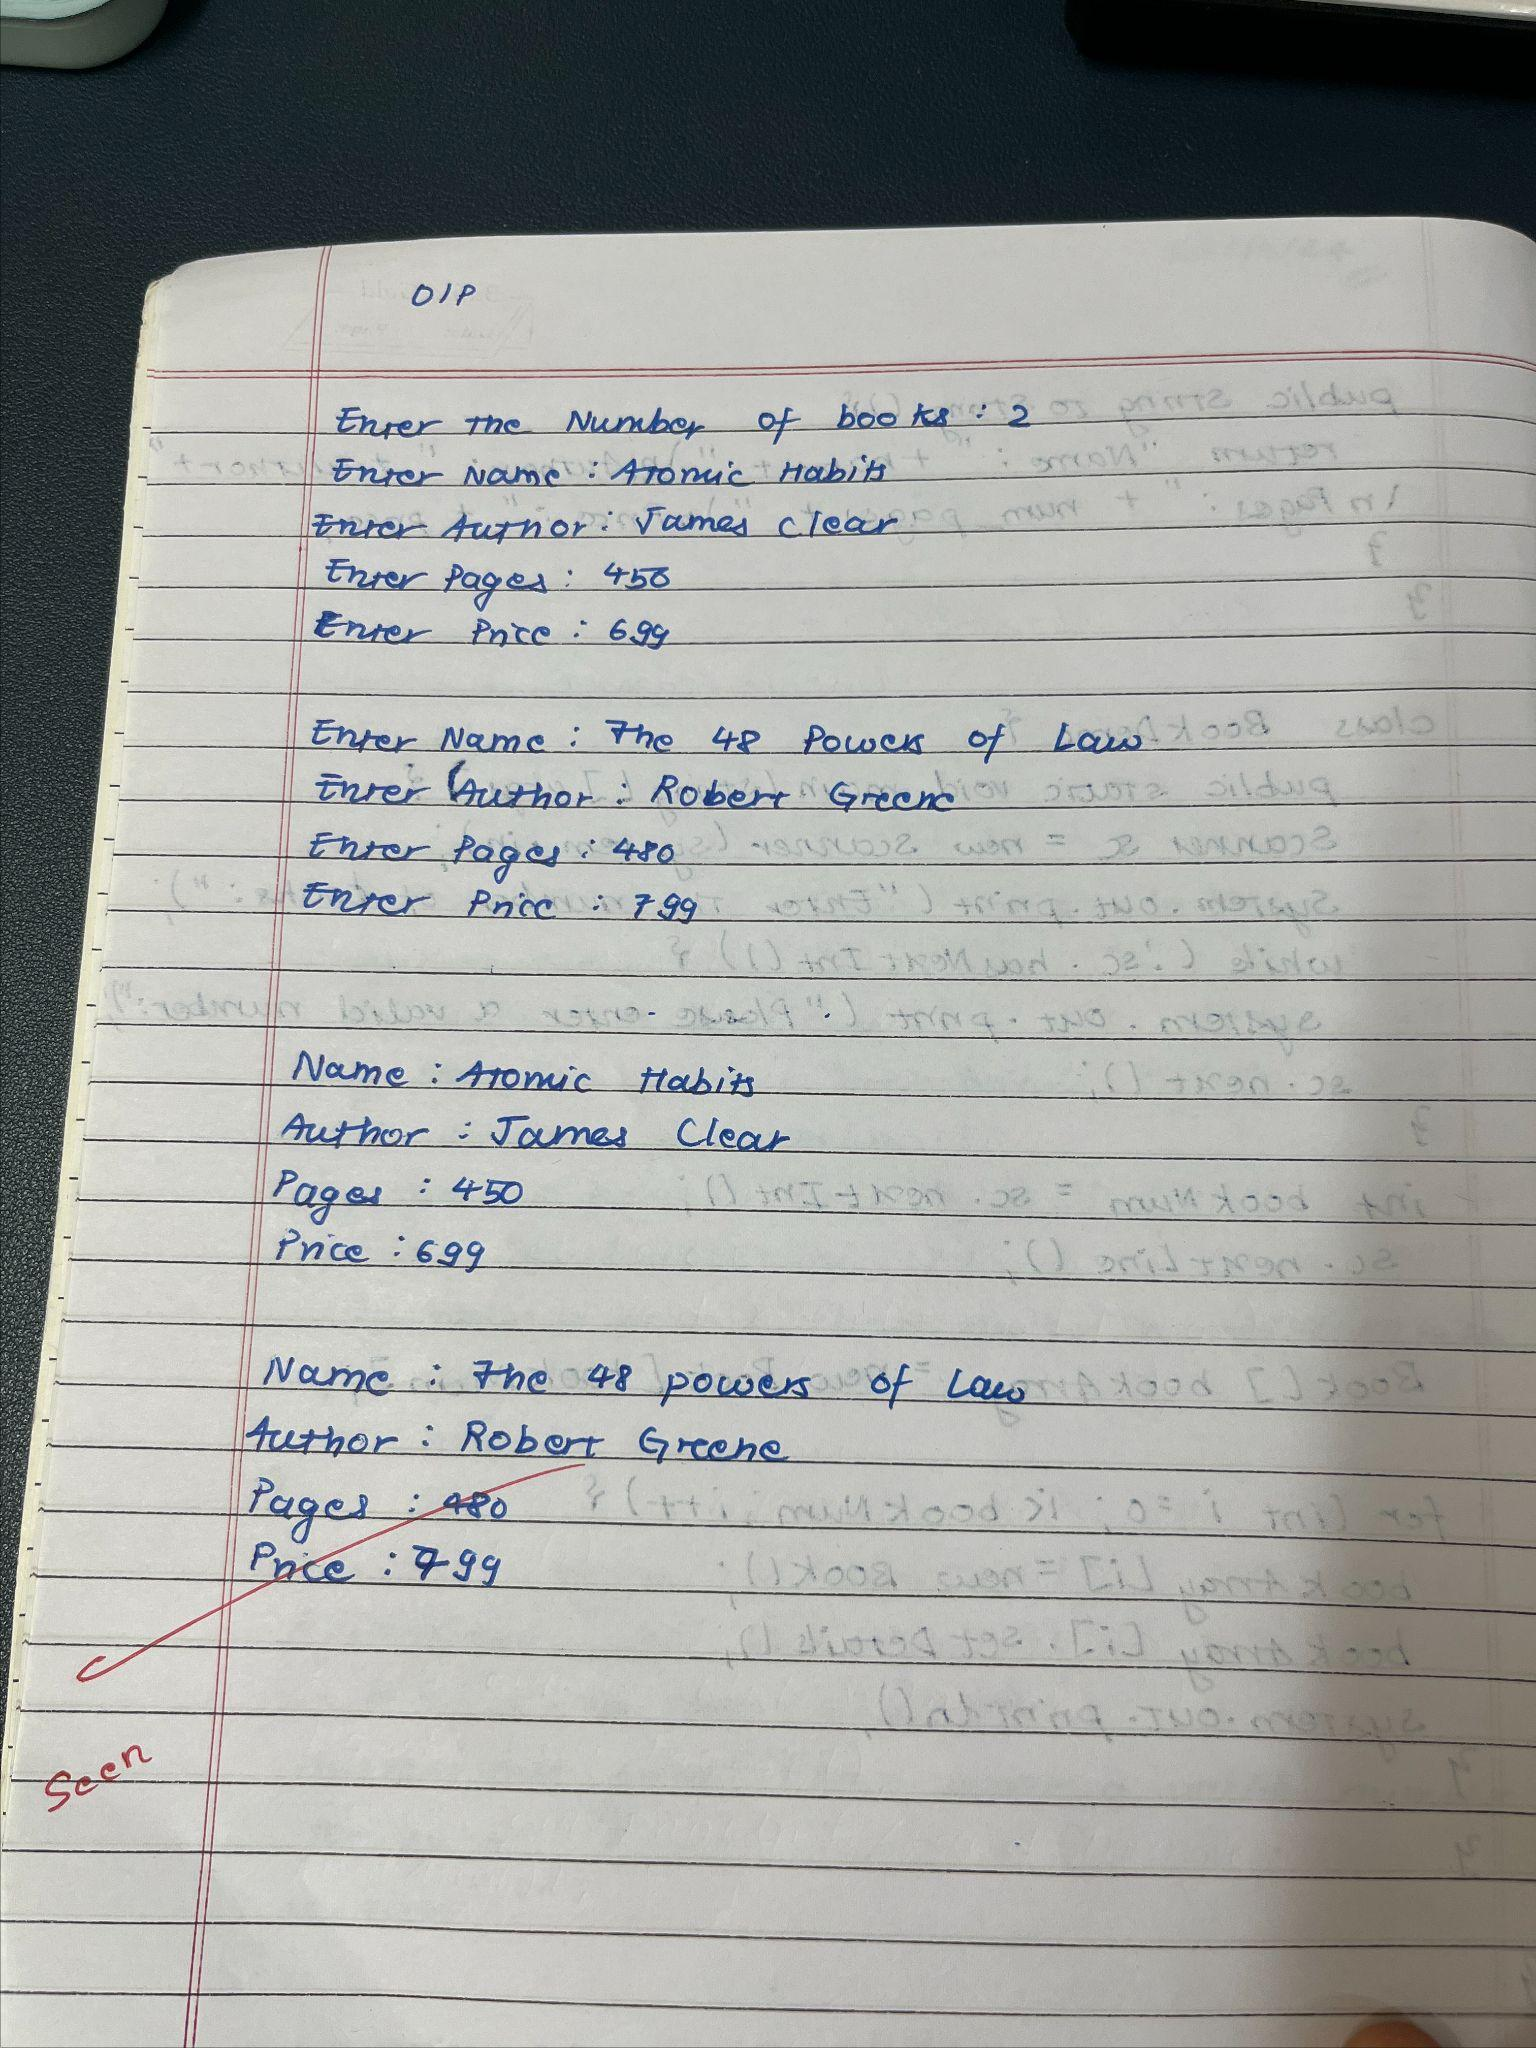 O/P
Enter the Number of books : 2
Enter Name : Atomic Habits
Enter Author : James Clear
Enter Pages : 450
Enter Price : 699
Enter Name : The 48 Powers of Law
Enter Author : Robert Greene
Enter Pages : 480
Enter Price : 799
Name : Atomic Habits
Author : James Clear
Pages : 450
Price : 699
Name : The 48 powers of Law
Author : Robert Greene
Pages : 480
Price : 799
Seen